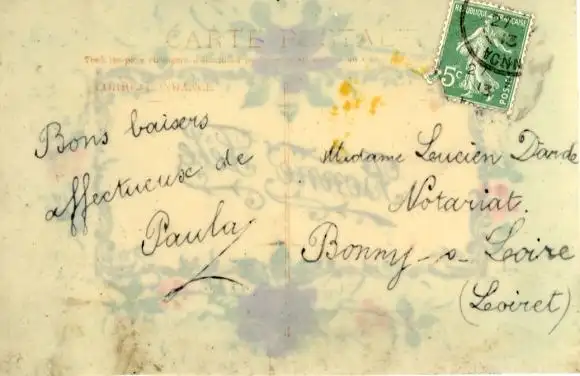 CARTE POSTALE
CORRESPONDANCE
RÉPUBLIQUE FRANÇAISE
5c
POSTES
Bons baisers
affectueux de
Paula
Madame Lucien Darde
Notariat.
Bonny-s-Loire
(Loiret)
Bonne Fête